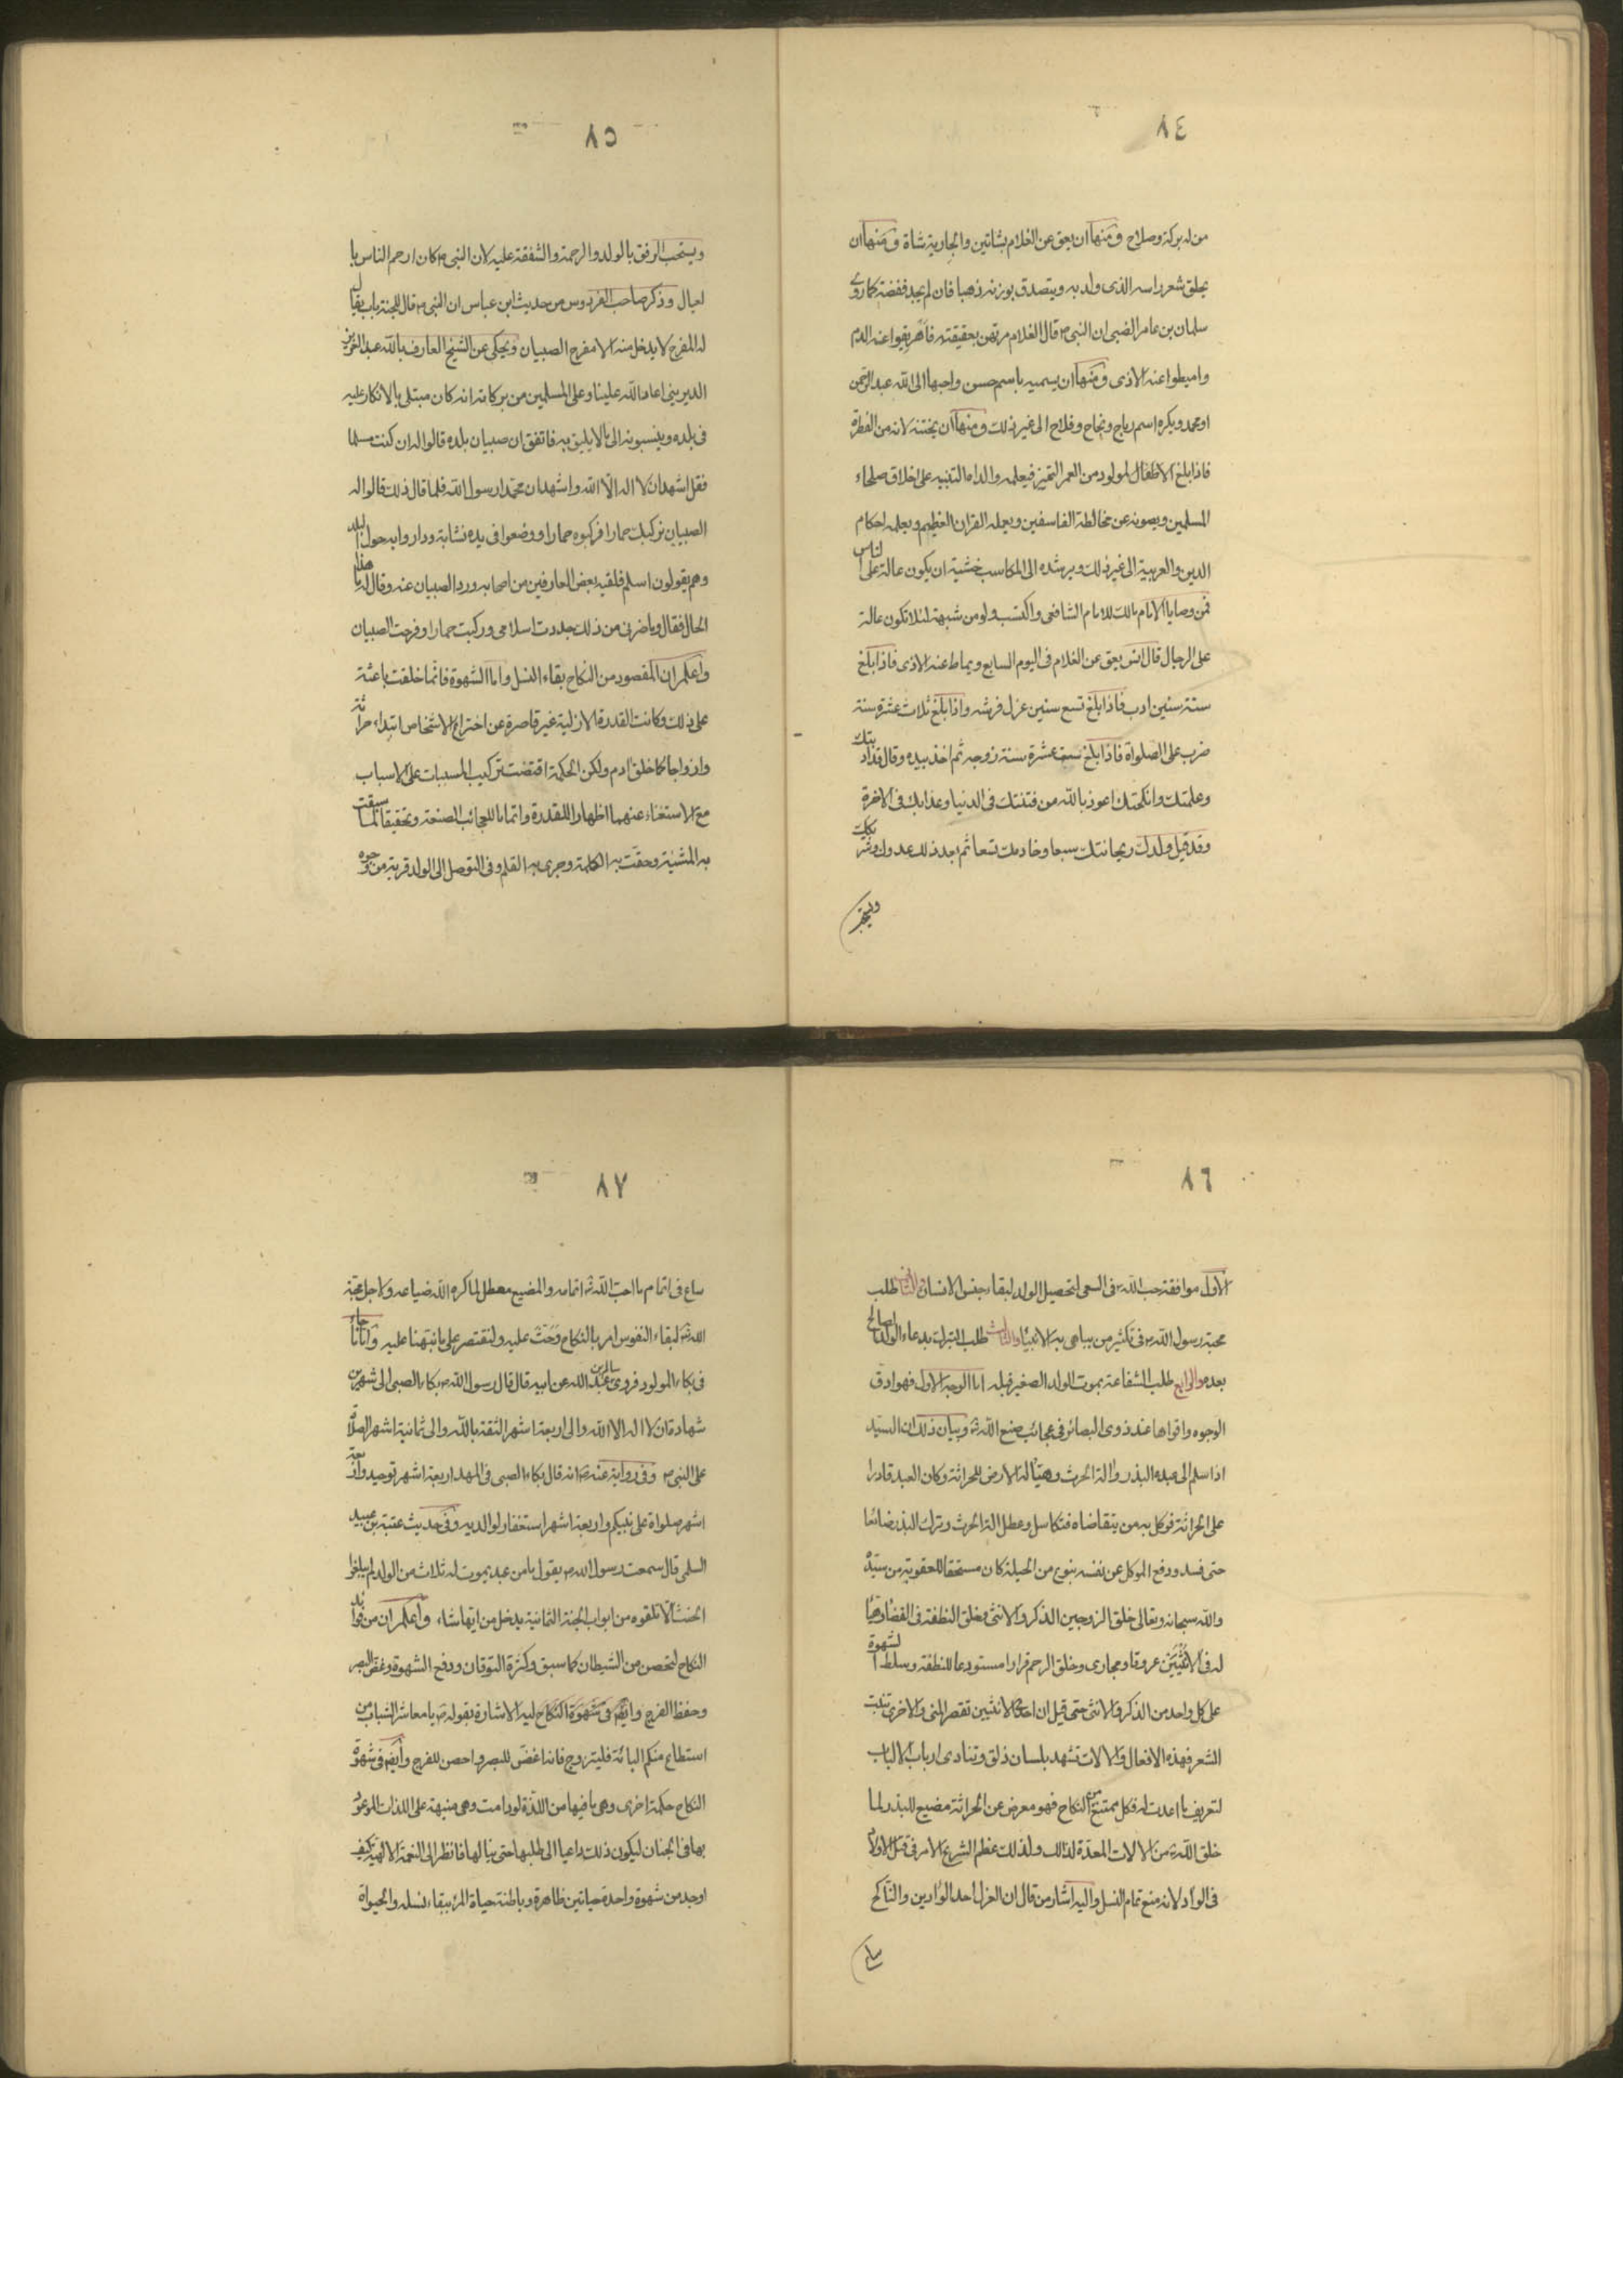 ٨٤
من له بركة وصلاح ومنها ان يعق عن الغلام بشاتين والجارية شاة ومنها ان
يحلق شعر راسه الذى ولد به ويتصدق بوزنه ذهبا فان لم يجد ففضة كما روى
سلمان بن عامر الضبى ان النبى م قال الغلام مرتهن بعقيقته فاهريقوا عنه الدم
واميطوا عنه الاذى ومنها ان يسميه باسم حسن واحبها الى الله عبد الرحمن
او محمد ويكره اسم رباح ونجاح وفلاح الى غير ذلك ومنها ان يختنه لانه من الفطرة
فاذا بلغ الاطفال المولود من العمر التميز فيعلمه والداه التنبيه على اخلاق صلحاء
المسلمين ويصونه عن مخالطة الفاسقين ويعلمه القران العظيم ويعلمه احكام
الدين والعربية الى غير ذلك ويرشده الى المكاسب خشية ان يكون عالة على الناس
فمن وصايا الامام مالك للامام الشافعى واكتسب ولو من شبهة لئلا تكون عالة
على الرجال قال انس يعق عن الغلام فى اليوم السابع ويماط عنه الاذى فاذا بلغ
ستة سنين ادب فاذا بلغ تسع سنين عزل فرشه واذا بلغ ثلاث عشرة سنة
ضرب على الصلواة فاذا بلغ ستة عشرة سنة زوجه ثم اخذ بيده وقال قد ادبتك
وعلمتك وانكحتك اعوذ بالله من فتنتك فى الدنيا وعذابك فى الاخرة
وقد قيل ولدك ريحانتك سبعا وخادمك تسعا ثم بعد ذلك عدوك او شريكك
ويستحب
٨٥
ويستحب الرفق بالولد والرحمة والشفقة عليه لان النبى م كان ارحم الناس با
لعيال وذكر صاحب الفردوس من حديث ابن عباس ان النبى م قال للجنة باب يقال
له المفرح لا يدخل منه الا مفرح الصبيان ويحكى عن الشيخ العارف بالله عبد العزيز
الديرينى اعاد الله علينا وعلى المسلمين من بركاته انه كان مبتلى بالانكار عليه
فى بلده وينسبونه الى ما لا يليق به فاتفق ان صبيان بلده قالوا له ان كنت مسلما
فقل اشهد ان لا اله الّا الله واشهد ان محمّدا رسول الله فلما قال ذلك قالوا له
الصبيان نركبك حمارا فركبوه حمارا ووضعوا فى يده نشابة وداروا به حول البلد
وهم يقولون اسلم فلقيه بعض العارفين من اصحابه ورد الصبيان عنه وقال له ما هذا
الحال فقال وما ضرنى من ذلك جددت اسلامى وركبت حمارا وفرحت الصبيان
واعلم ان المقصود من النكاح بقاء النسل واما الشهوة فانما خلقت باعثة
على ذلك وكانت القدرة الازلية غير قاصرة عن اختراع الاشخاص ابتداء حراثة
وازواجا كما خلق ادم ولكن الحكمة اقتضت تركيب المسببات على الاسباب
مع الاستغناء عنهما اظهارا للقدرة واتماما للعجائب الصنعة وتحقيقا لما سبقت
به المشيئة وحقت به الكلمة وجرى به القلم وفى التوصل الى الولد قربة من وجوه
٨٦
الاول موافقة حب الله فى السعى لتحصيل الولد لبقاء جنس الانسان الثانى طلب
محبة رسول الله م فى تكثير من يباهى به الانبياء والثالث طلب التبرك بدعاء الولد الصالح
بعده والرابع طلب الشفاعة بموت الولد الصغير قبله اما الوجه الاول فهو ادق
الوجوه واقواها عند ذوى البصائر فى عجائب صنع الله وبيان ذلك ان السيّد
اذا سلم الى عبده البذر والة الحرث وهيّأ له الارض للحراثة وكان العبد قادرا
على الحراثة فوكل به من يتقاضاه فتكاسل وعطل الة الحرث وترك البذر ضائعا
حتى فسد ودفع الموكل عن نفسه بنوع من الحيلة كان مستحقا للعقوبة من سيّده
والله سبحانه وتعالى خلق الزوجين الذكر والانثى وخلق النطفة فى الفقار وهيّأ
له فى الانثيين عروقا ومجارى وخلق الرحم قرارا مستودعا للنطفة وسلط الشهوة
على كل واحد من الذكر والانثى حتى قيل ان احدى الانثيين تقصر المنى والاخرى تنبت
الشعر فهذه الافعال والالات تشهد بلسان ذلق وتنادى ارباب الالباب
لتعريف ما اعدت له فكل ممتنع من النكاح فهو معرض عن الحراثة مضيع للبذر لما
خلق الله من الالات المعدّة لذالك ولذلك عظم الشريع الامر فى قتل الاولاد
فى الوأد لانه منع تمام النسل واليه اشار من قال ان العزل احد الوأدين والنّاكح
ساع
٨٧
ساع فى اتمام ما احب الله اتمامه والمضيع معطل لما كره الله ضياعه ولاجل محبة
الله لبقاء النفوس امر بالنكاح وحَثَّ عليه ولنقتصر على ما نبّهنا عليه وامّا ما جاء
فى بكاء المولود فروى سالم بن عبد الله عن ابيه قال قال رسول الله م بكاء الصبى الى شهرين
شهادة ان لا اله الا الله والى اربعة اشهر الثقة بالله والى ثمانية اشهر الصلاة
على النبى م وفى رواية عنه انه قال بكاء الصبى فى المهد اربعة اشهر توحيد واربعة
اشهر صلواة على نبيكم واربعة اشهر استغفار لوالديه وفى حديث عتبة بن عبيد
السلمى قال سمعت رسول الله م يقول ما من عبد يموت له ثلاث من الولد لم يبلغوا
الحنث الّا تلقوه من ابواب الجنة الثمانية يدخل من ايها شاء واعلم ان من فوائد
النكاح لتحصن من الشيطان كما سبق وكثرة التوقان ودفع الشهوة وغض البصر
وحفظ الفرج وايضا فى شهوة النكاح ليه الاشارة بقوله م يا معاشر الشباب من
استطاع منكم البائة فليتزوج فانه اغضّ للبصر واحصن للفرج وايضا فى شهوة
النكاح حكمة اخرى وهى ما فيها من اللّذة لو دامت وهى منبهة على اللذات الموعود
بها فى الجنان ليكون ذلك داعيا الى طلبها حتى ينالها فانظر الى النعمة الالهية كيف
اوجد من شهوة واحدة حياتين ظاهرة وباطنة حياة المرء ببقاء نسله والحيواة